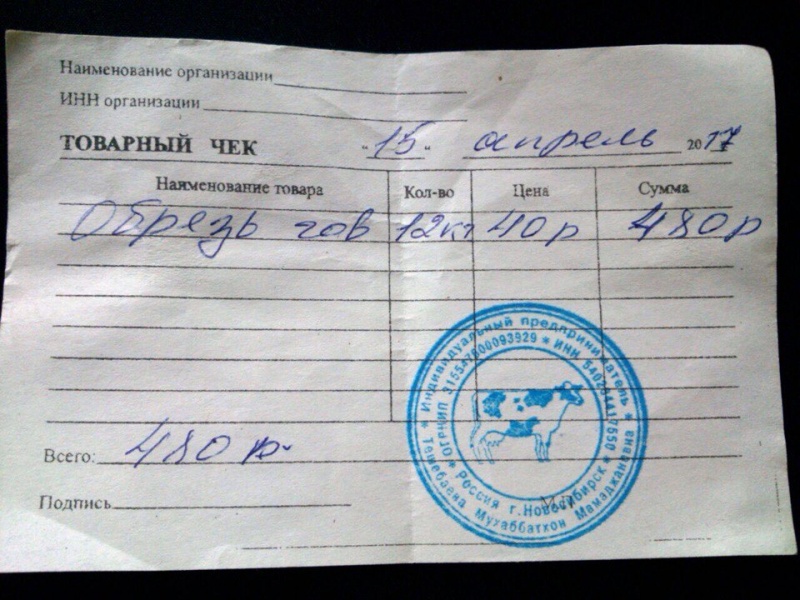 Наименование организации
ИНН организации
ТОВАРНЫЙ ЧЕК "15" апрель 2017
Наименование товара Кол-во Цена Сумма
Обрезь гов 12кг 40р 480р
Всего: 480 р.
Подпись
* Индивидуальный предприниматель *
Тешебаева Мухаббатхон Мамаджановна
ОГРНИП 315547600093929 * ИНН 540234417550
* Россия г.Новосибирск *
М.П.